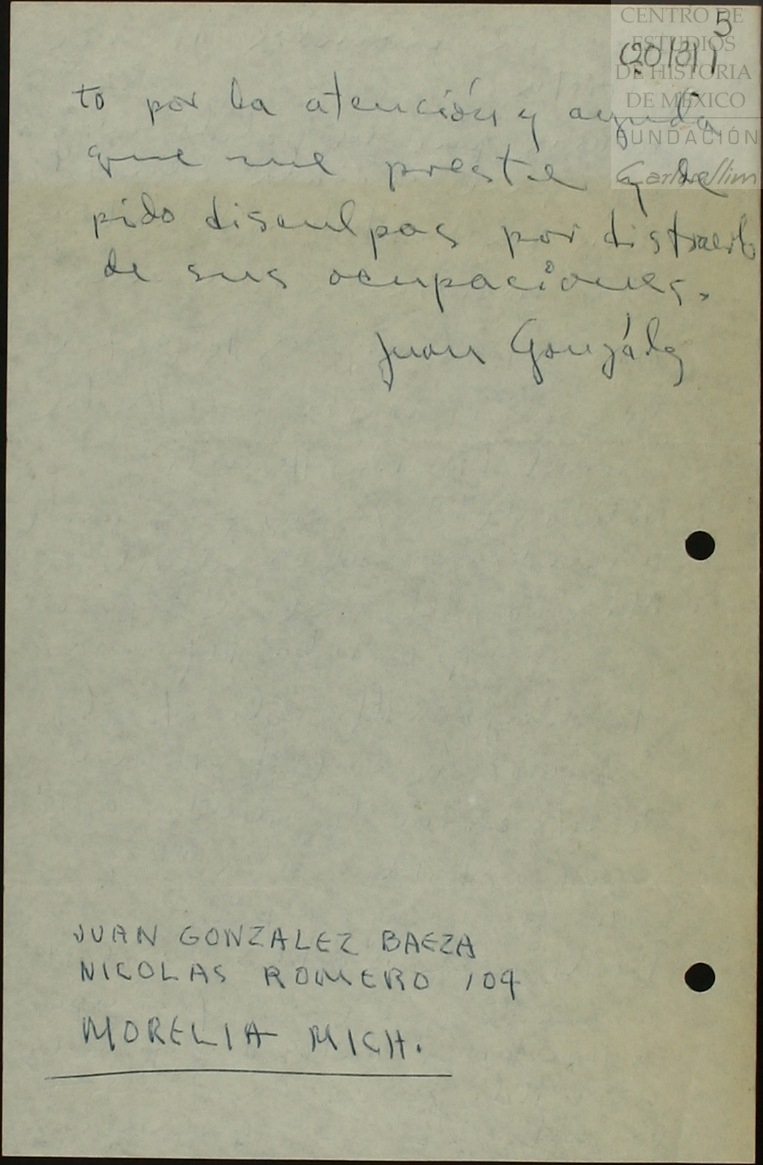 5
(20/3)
CENTRO DE
ESTUDIOS
DE HISTORIA
DE MÉXICO
FUNDACIÓN
Carlos Slim
to por la atención y ayuda
que me preste y le
pido disculpas por distraerlo
de sus ocupaciones.
Juan González
JUAN GONZALEZ BAEZA
NICOLAS ROMERO 109
MORELIA MICH.